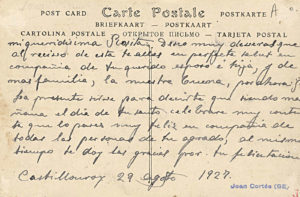 POST CARD Carte Postale POSTKARTE A
BRIEFKAART — POSTKAART
CARTOLINA POSTALE ОТКРЫТОЕ ПИСЬМО — TARJETA POSTAL
mi queridisima Deseo muy deveras que
al recivo de esta te alles en perfecta salud en
compañia de tu querido esposo è hija, y de
mas familia, la nuestra buena, por ahora
La presente sirve para decirte que siendo ma
ñana el dia de tu santo celebrare muy cont
te que lo pases muy feliz en compañia de
todas las personas de tu agrado, al mismo
tiempo te doy las gracias por tu felicitacion
Castilloux 29 agosto 1927.
Joan Cortés (SE)